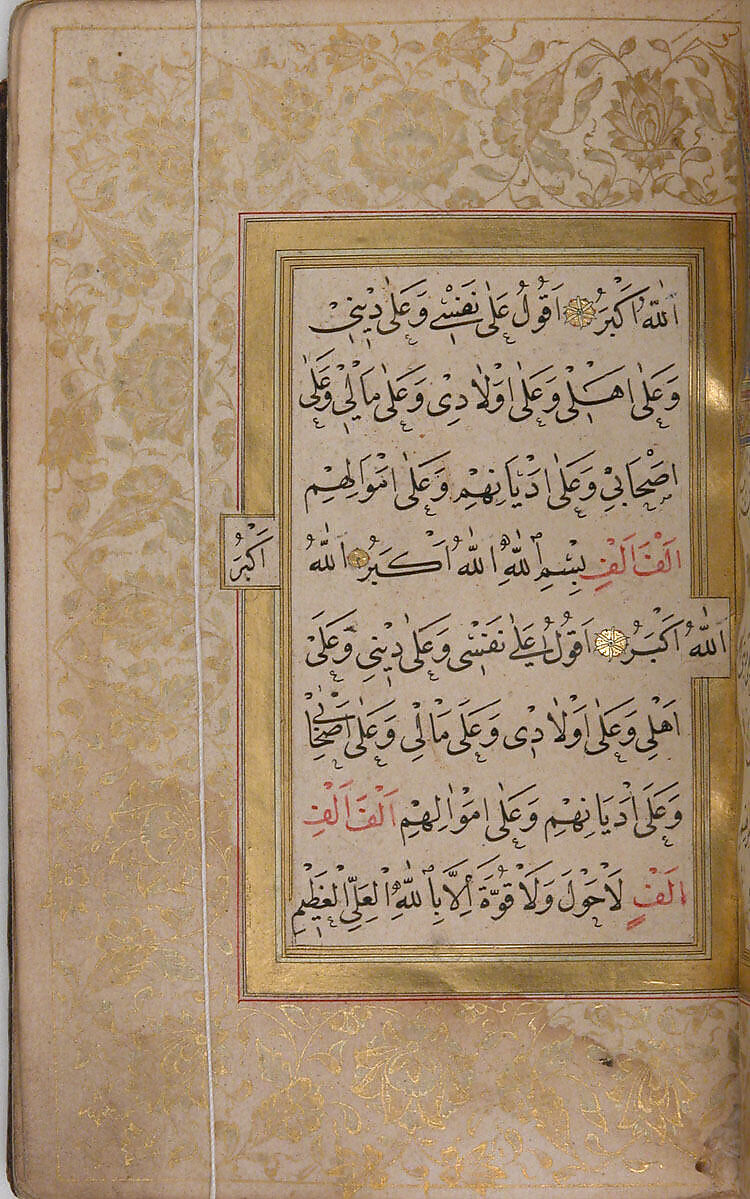 اَللّٰهُ اَكْبَرُ اَقُولُ عَلٰى نَفْسِى وَعَلٰى دِينِى
وَعَلٰى اَهْلِى وَعَلٰى اَوْلَادِى وَعَلٰى مَالِى وَعَلٰى
اَصْحَابِى وَعَلٰى اَدْيَانِهِمْ وَعَلٰى اَمْوَالِهِمْ
اَلْفَ اَلْفِ بِسْمِ اللّٰهِ اَللّٰهُ اَكْبَرُ اَللّٰهُ
اَكْبَرُ
اَللّٰهُ اَكْبَرُ اَقُولُ عَلٰى نَفْسِى وَعَلٰى دِينِى وَعَلٰى
اَهْلِى وَعَلٰى اَوْلَادِى وَعَلٰى مَالِى وَعَلٰى اَصْحَابِى
وَعَلٰى اَدْيَانِهِمْ وَعَلٰى اَمْوَالِهِمْ اَلْفَ اَلْفِ
اَلْفِ لَاحَوْلَ وَلَا قُوَّةَ اِلَّا بِاللّٰهِ الْعَلِىِّ الْعَظِيمِ